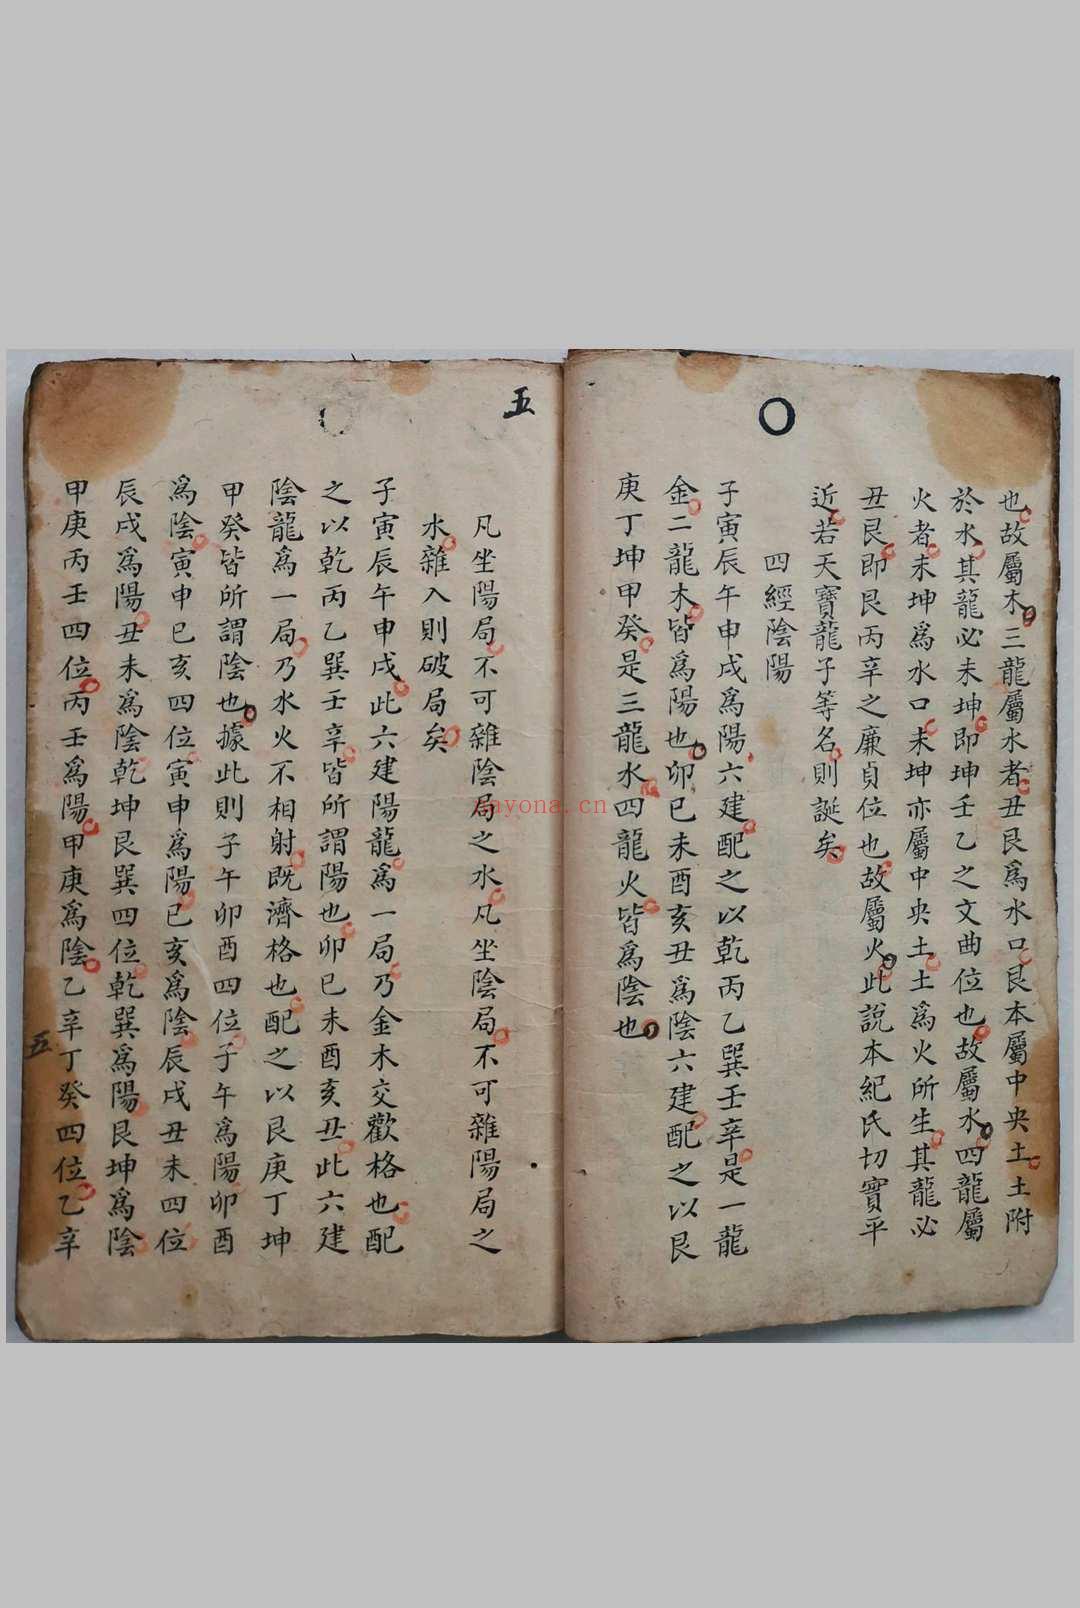 也故屬木三龍屬水者丑艮為水口艮本屬中央土土附
於水其龍必未坤即坤壬乙之文曲位也故屬水四龍屬
火者未坤為水口未坤亦屬中央土土為火所生其龍必
丑艮即艮丙辛之廉貞位也故屬火此說本紀氏切實平
近若天寶龍子等名則誕矣
四經陰陽
子寅辰午申戌為陽六建配之以乾丙乙巽壬辛是一龍
金二龍木皆為陽也卯巳未酉亥丑為陰六建配之以艮
庚丁坤甲癸是三龍水四龍火皆為陰也
五
凡坐陽局不可雜陰局之水凡坐陰局不可雜陽局之
水雜入則破局矣
子寅辰午申戌此六建陽龍為一局乃金木交歡格也配
之以乾丙乙巽壬辛皆所謂陽也卯巳未酉亥丑此六建
陰龍為一局乃水火不相射既濟格也配之以艮庚丁坤
甲癸皆所謂陰也據此則子午卯酉四位子午為陽卯酉
為陰寅申巳亥四位寅申為陽巳亥為陰辰戌丑未四位
辰戌為陽丑未為陰乾坤艮巽四位乾巽為陽艮坤為陰
甲庚丙壬四位丙壬為陽甲庚為陰乙辛丁癸四位乙辛
五
sayona.cn